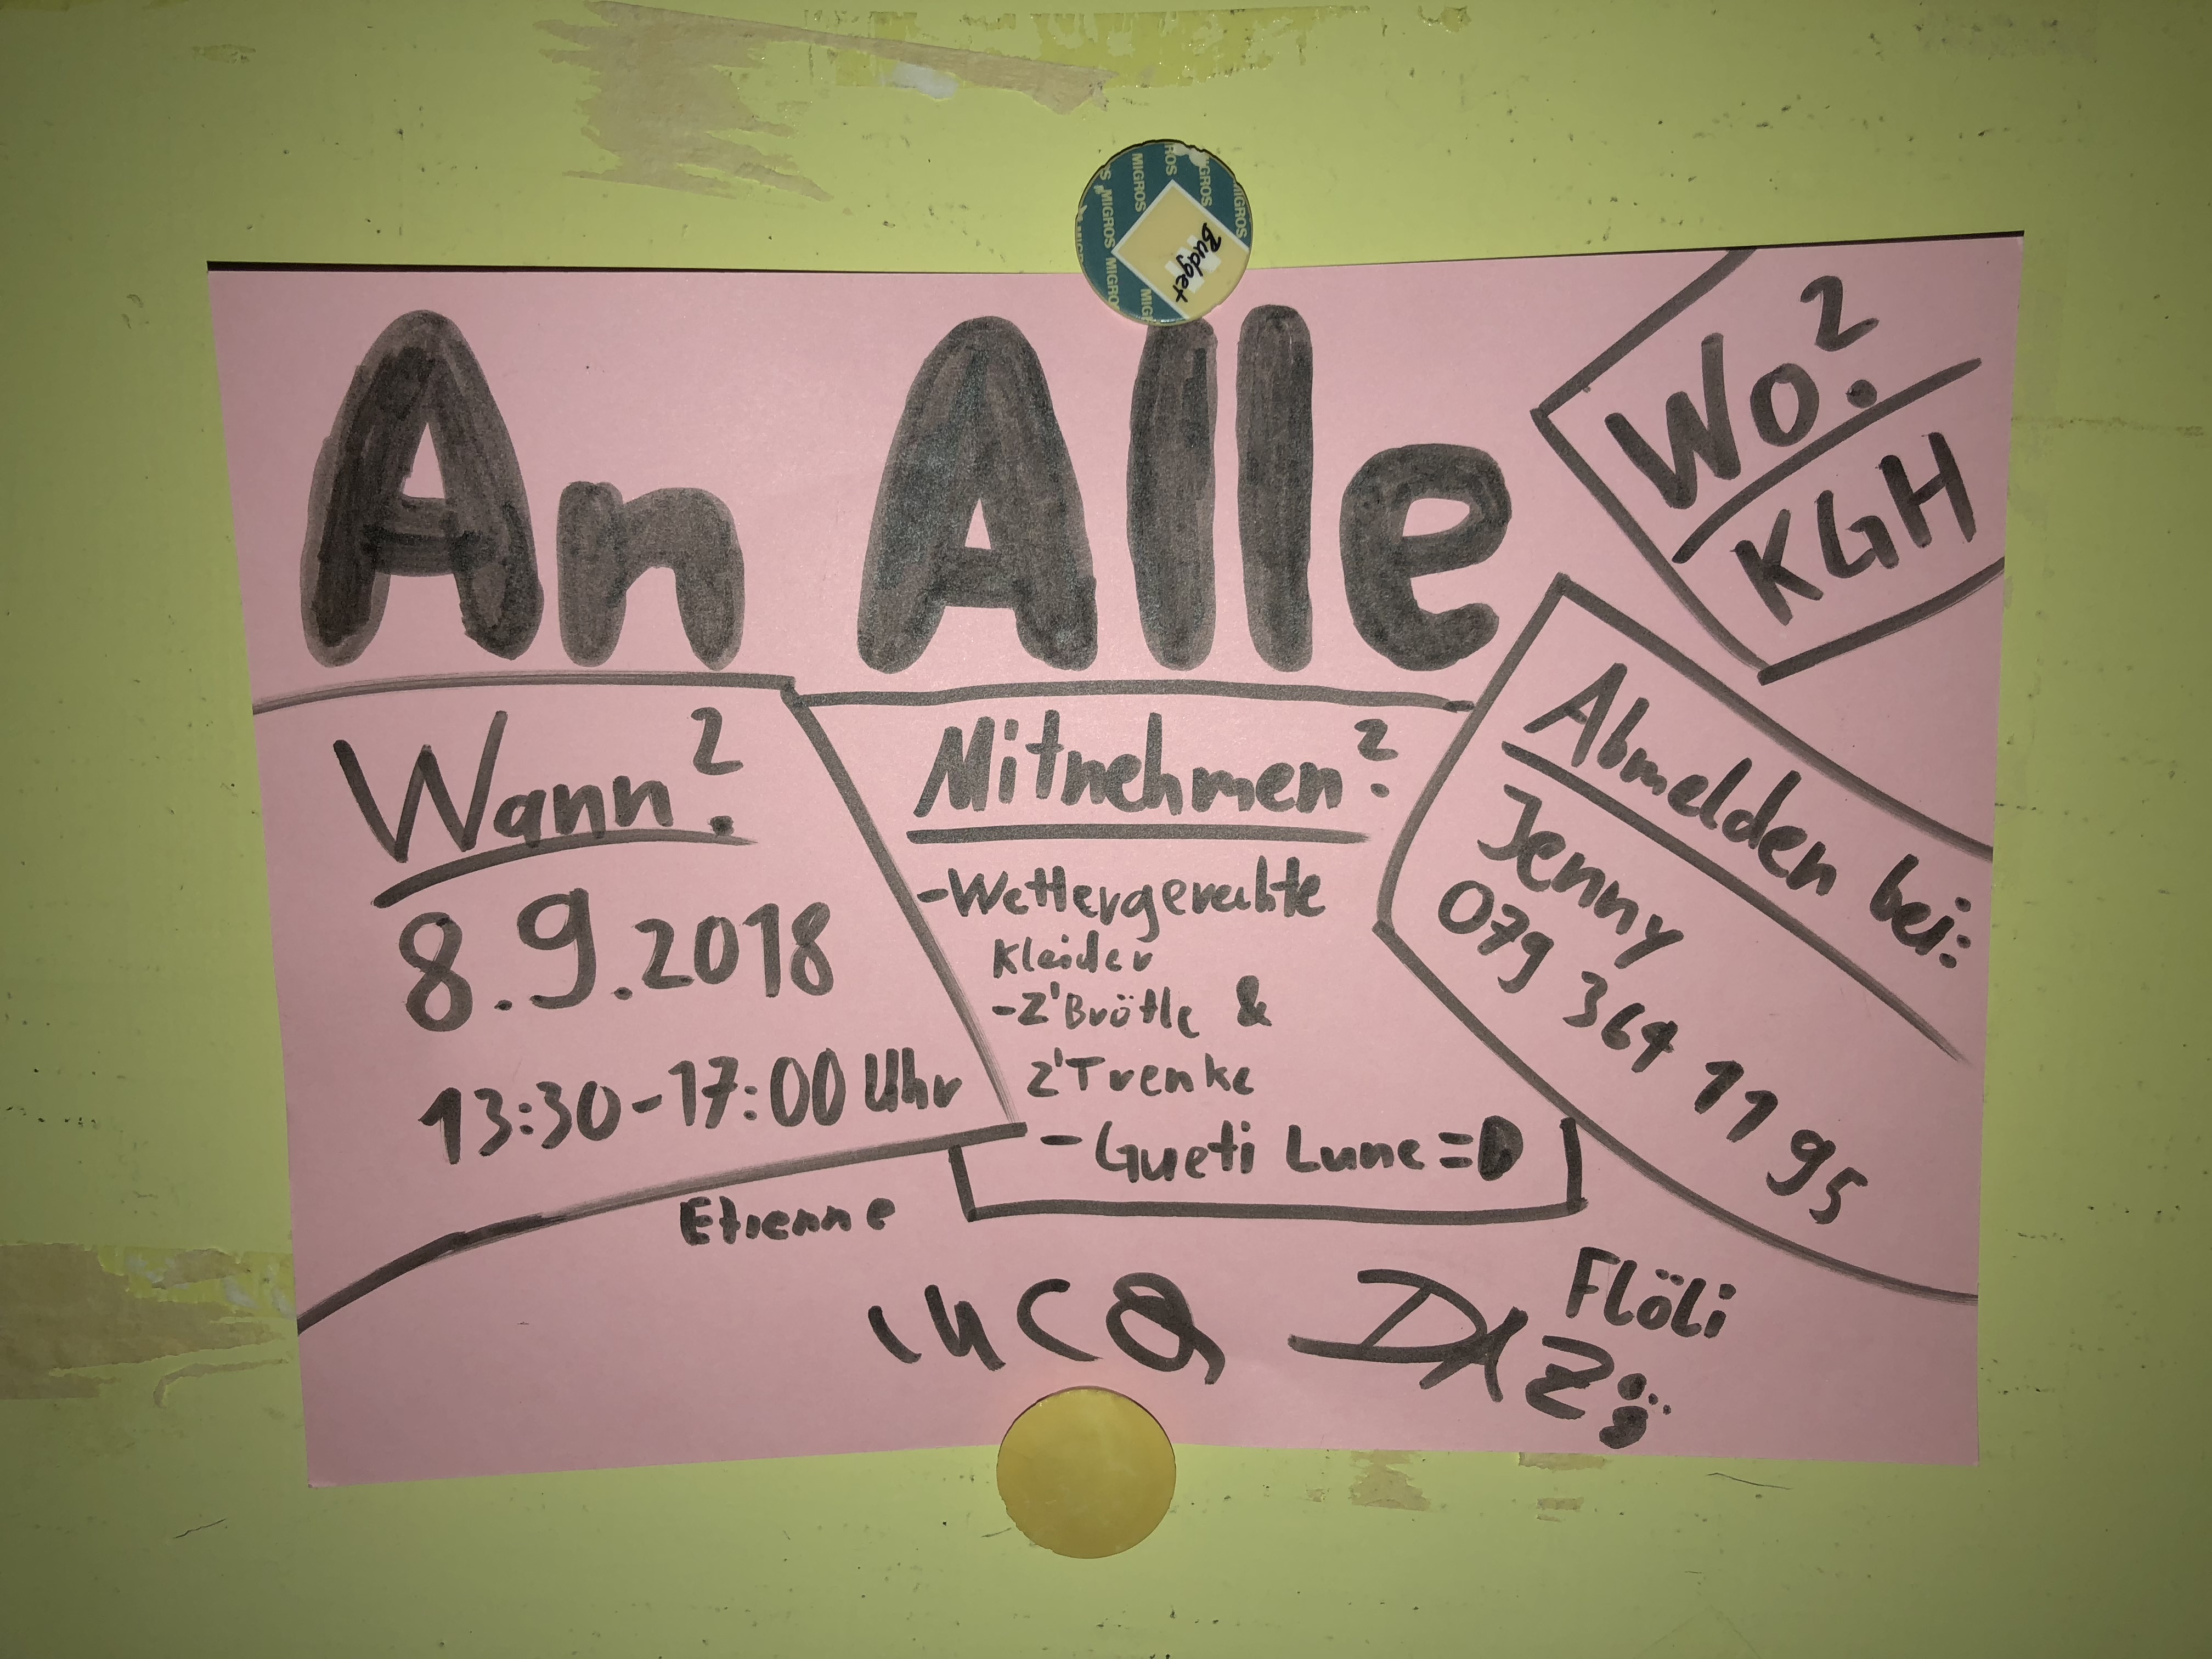 MIGROS MIGROS MIGROS
Budget
An Alle
Wo?
KGH
Wann?
8.9.2018
13:30-17:00 Uhr
Mitnehmen?
-Wettergerechte
Kleider
-Z'Brötle &
Z'Trenke
-Gueti Lune =D
Abmelden bei:
Jenny
079 364 11 95
Etienne
Flöli